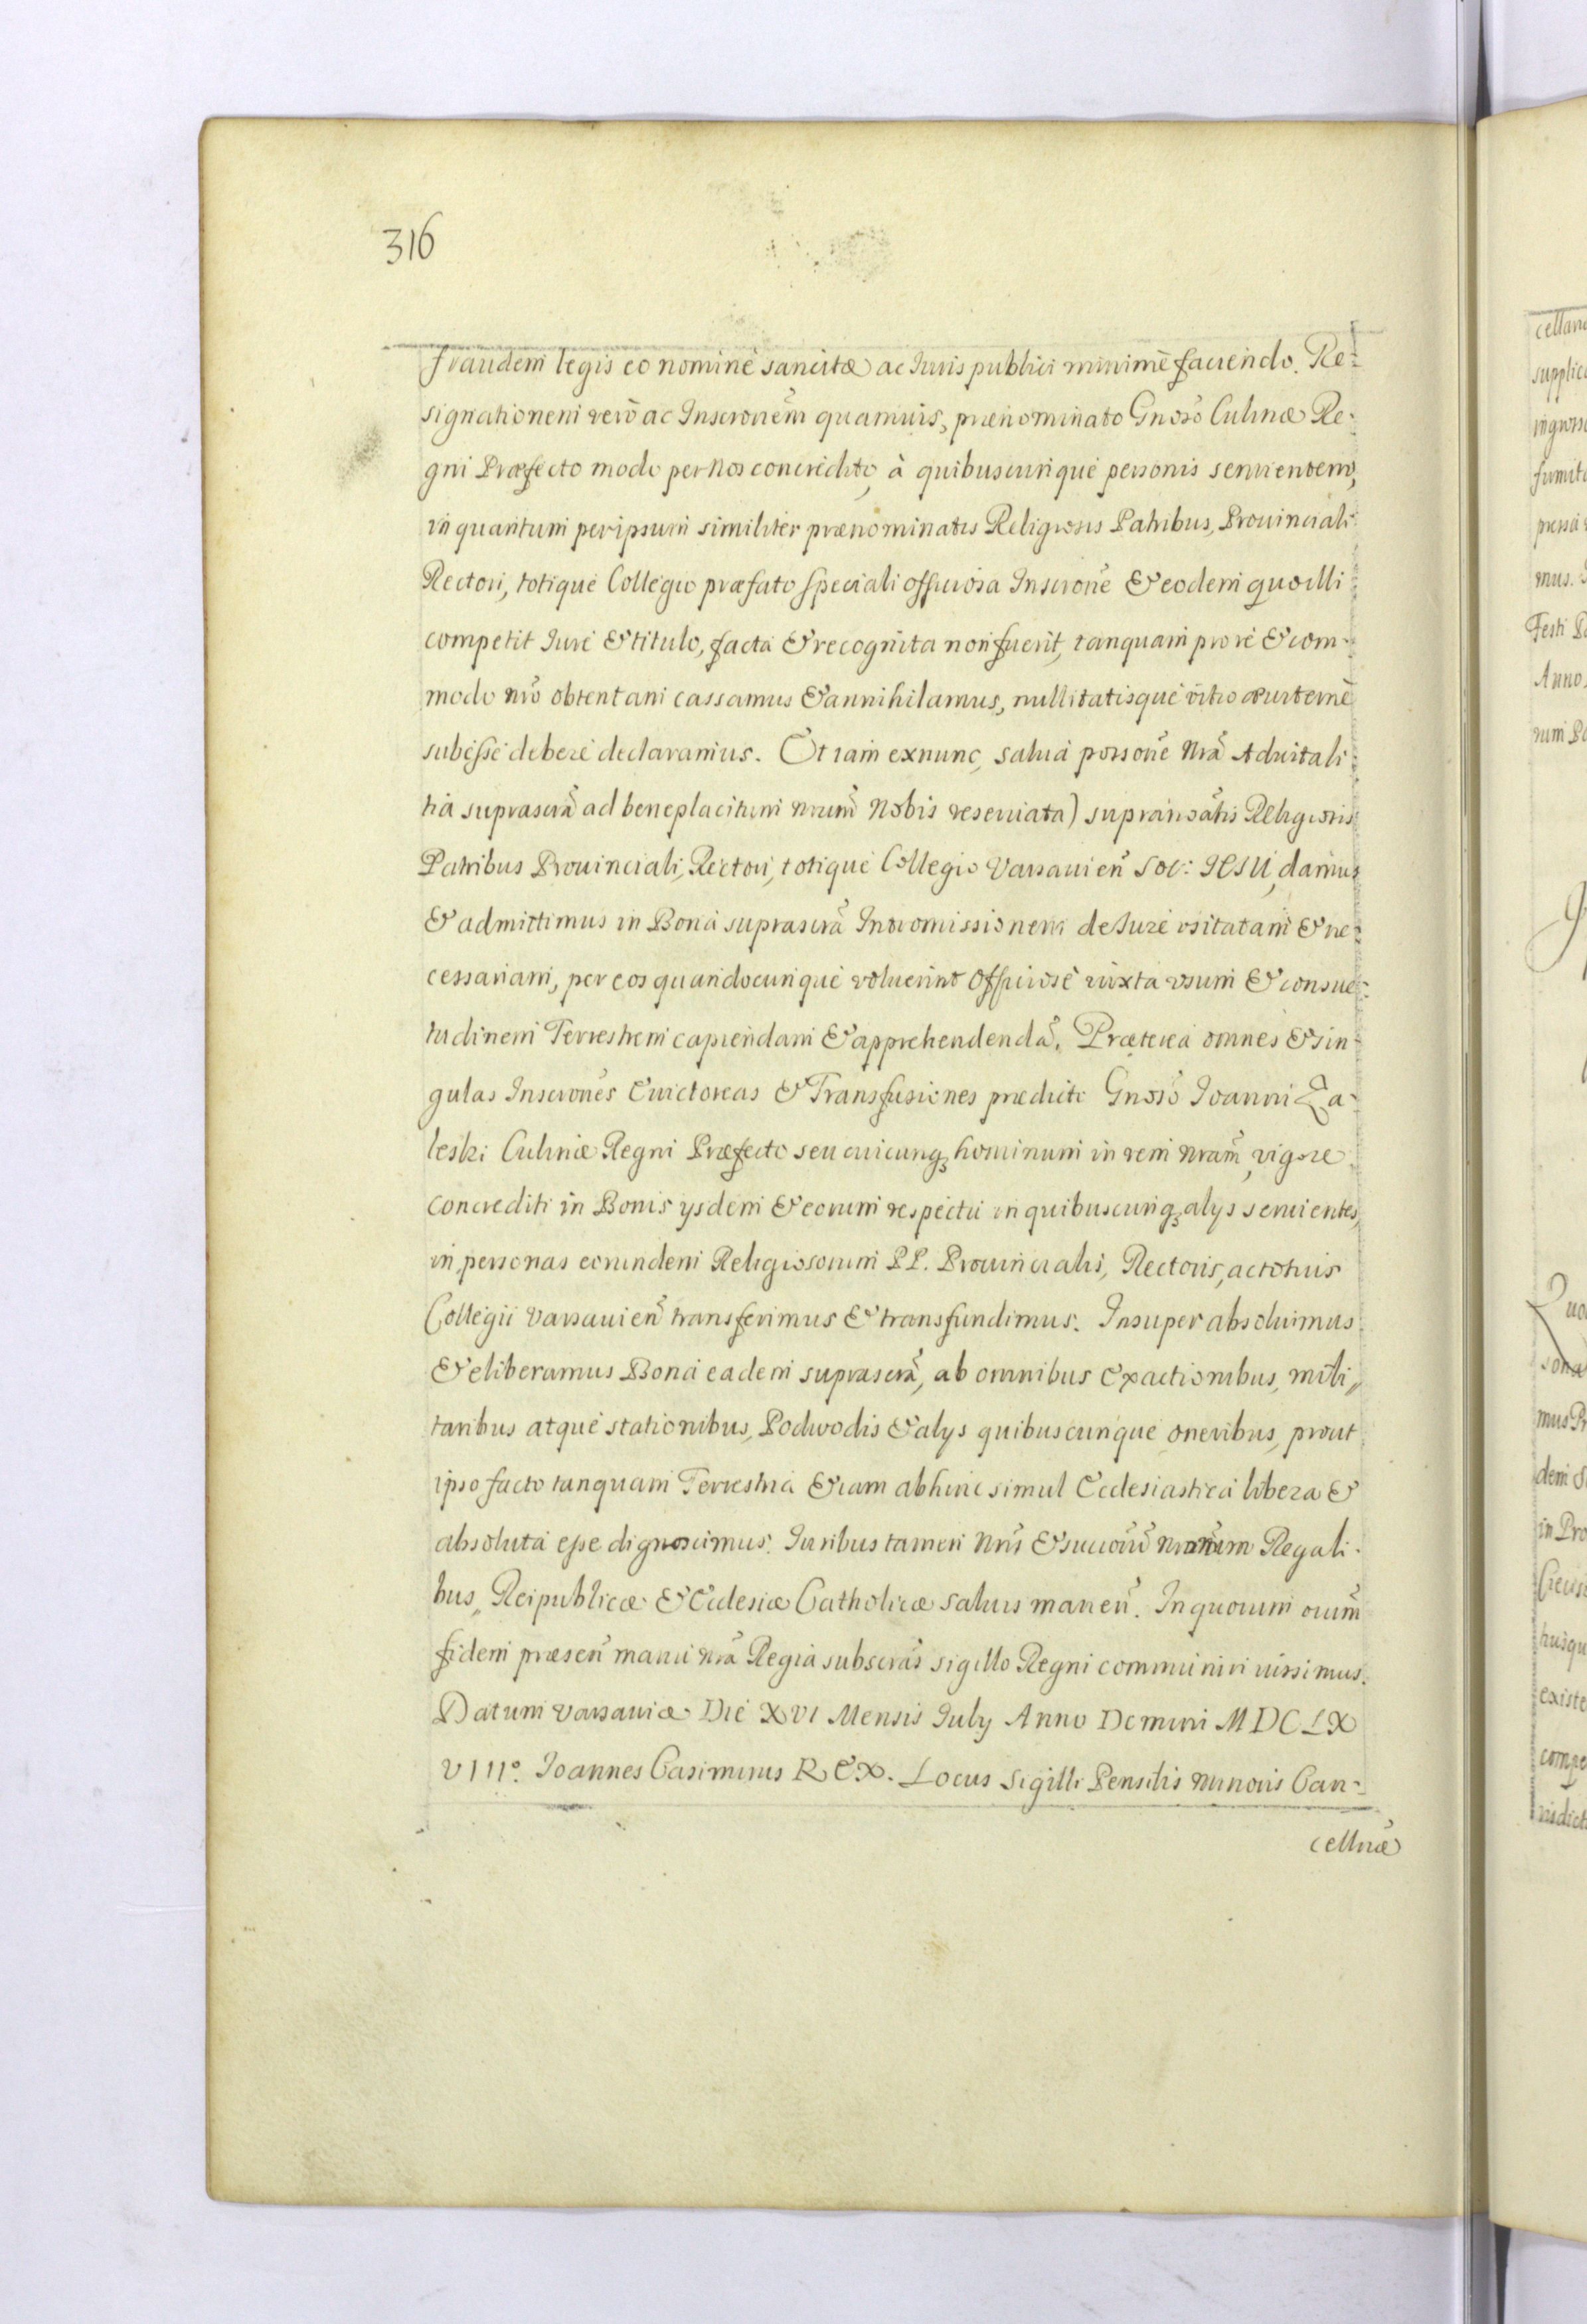 316
fraudem legis eo nominè sancitæ ac Iuris publici minimè faciendo. Re-
signationem verò ac Inscrõnem̃ quamuis, prænominato Gnoso Culinæ Re-
gni Præfecto modo per Nos concredito, à quibuscunque personis seruientem,
in quantum per ipsum similiter prænominatis Religiosis Patribus, Prouinciali
Rectori, totique Collegio præfato speciali officiosa Inscrone & eodem quo illi
competit Iure & titulo, facta & recognita non fuerit, tanquam pro re & com-
modo nro obtentam cassamus & annihilamus, nullitatisque vitio
subesse debere declaramus. Et iam exnunc, salua persone Nrã Aduitali-
tia suprascrã ad beneplacitum nrum Nobis reseruata) Religiosis
Patribus Prouinciali, Rectori, totique Collegio Varsauien̄ Soc: IESU, damus
& admittimus in Bona suprascrã Intromissionem de Iure vsitatam & ne-
cessariam, per eos quandocunque voluerint officiosè iuxta vsum & consue-
tudinem Terrestrem capiendam & apprehendendã. Prætereà omnes & sin-
gulas Inscrones Euictoreas & Transfusiones prædicto Gnoso Ioanni Za-
leski Culinæ Regni Præfecto seu cuicunq hominum in rem Nram, vigore
concrediti in Bonis ysdem & eorum respectu in quibuscunq alys seruientes,
in personas eorundem Religiosorum PP. Prouincialis, Rectoris, ac totius
Collegii Varsauien̄ transferimus & transfundimus. Insuper absoluimus
& eliberamus Bona eadem suprascrã, ab omnibus Exactionibus, mili,,
taribus atque stationibus, Podwodis & alys quibuscunque oneribus, prout
ipso facto tanquam Terrestria & iam abhinc simul Ecclesiastica libera &
absoluta esse dignoscimus. Iuribus tamen Nris & succorũ Regali-
bus, Reipublicæ & Ecclesiæ Catholicæ saluis manen̄. In quorum oium̄
fidem præsen̄ manu nrã Regia subscrãs sigillo Regni communiri iussimus.
Datum Varsauiæ Die XVI Mensis July Anno Domini MDCLX
VIIIº. Ioannes Casimirus REX. Locus Sigilli Pensilis minoris Can-
cellriæ